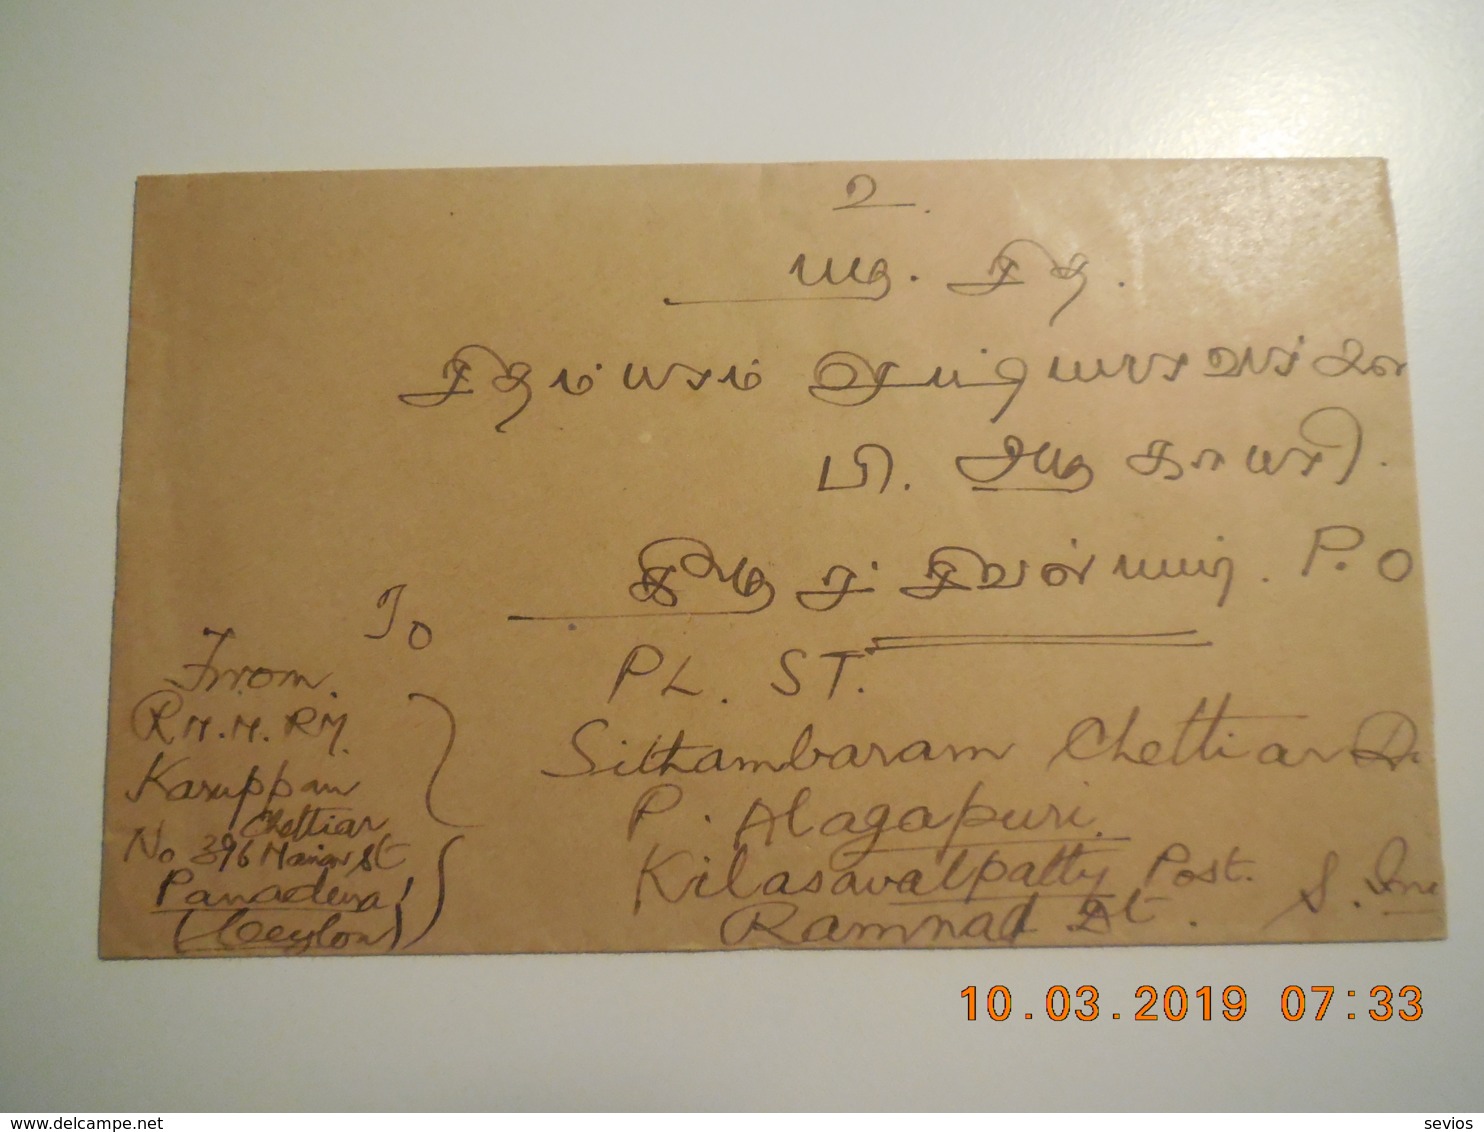 உ.
பழ. சித.
சிதம்பரம் செட்டியாரவர்கள்
பி. அழகாபுரி.
கீழ சிவல்பட்டி. P.O
To
PL. ST.
Sithambaram Chettiar
P. Alagapuri.
Kilasavalpatty Post.
Ramnad Dt. S. Ind
From.
RM.M. RM.
Karuppan
Chettiar
No 396 Main St
Panadura
(Ceylon)
10.03.2019 07:33
www.delcampe.net
sevios